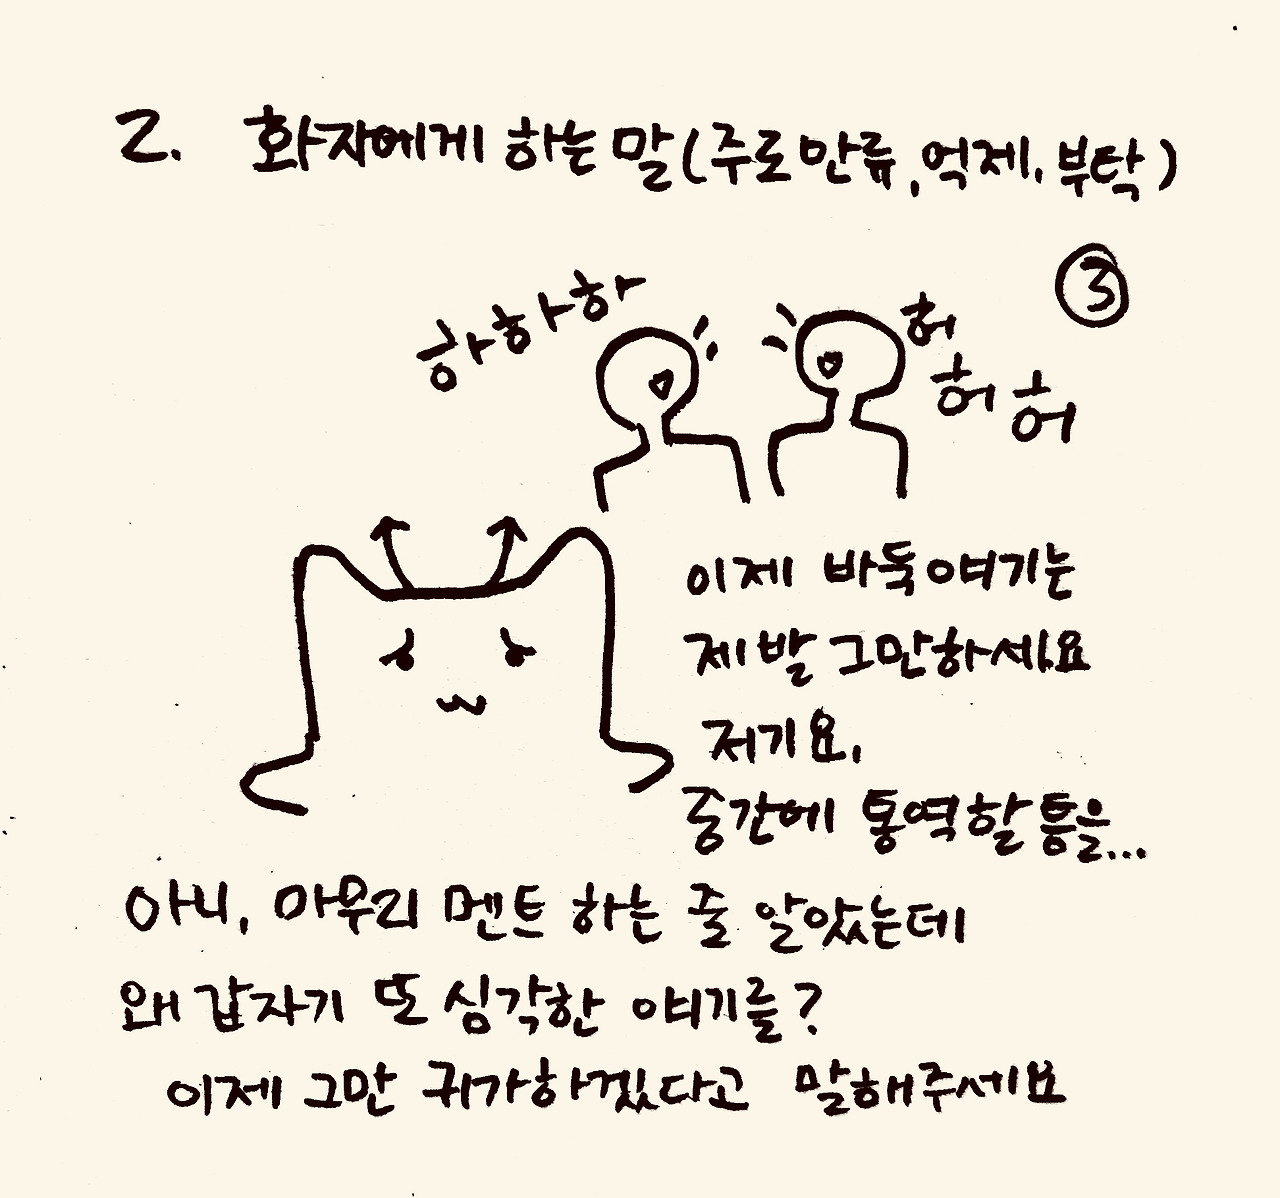 2. 화자에게 하는 말(주로 만류, 억제, 부탁)
③
하하하
허
허 허
이제 바둑얘기는
제발 그만하세요
저기요,
중간에 통역할 틈을...
아니, 마무리 멘트 하는 줄 알았는데
왜 갑자기 또 심각한 얘기를?
이제 그만 귀가하겠다고 말해주세요